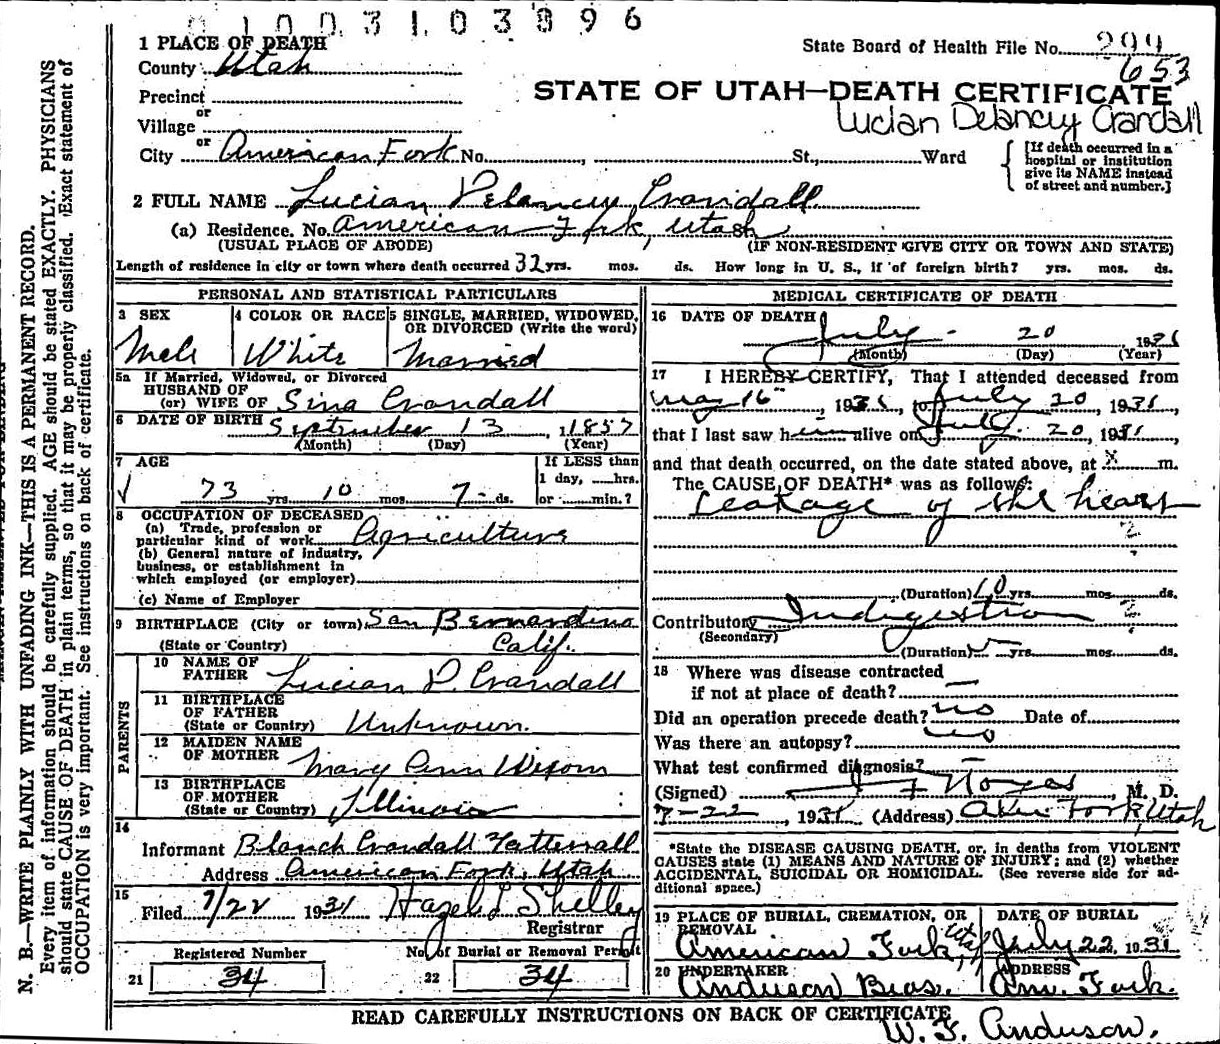 1003103896
1 PLACE OF DEATH
State Board of Health File No. 299
653
County Utah
Precinct
or
Village
or
City American Fork No. , St., Ward
STATE OF UTAH—DEATH CERTIFICATE
Lucian Delancuy Crandall
[If death occurred in a hospital or institution give its NAME instead of street and number.]
2 FULL NAME Lucian Delancuy Crandall
(a) Residence. No. American Fork, Utah
(USUAL PLACE OF ABODE) (IF NON-RESIDENT GIVE CITY OR TOWN AND STATE)
Length of residence in city or town where death occurred 32 yrs. mos. ds. How long in U. S., if of foreign birth? yrs. mos. ds.
PERSONAL AND STATISTICAL PARTICULARS
3 SEX 4 COLOR OR RACE 5 SINGLE, MARRIED, WIDOWED, OR DIVORCED (Write the word)
Male White Married
5a If Married, Widowed, or Divorced
HUSBAND OF
(or) WIFE OF Sina Crandall
6 DATE OF BIRTH September 13, 1857
(Month) (Day) (Year)
7 AGE If LESS than
1 day, hrs.
73 yrs. 10 mos. 7 ds. or min.?
8 OCCUPATION OF DECEASED
(a) Trade, profession or
particular kind of work Agriculture
(b) General nature of industry,
business, or establishment in
which employed (or employer)
(c) Name of Employer
9 BIRTHPLACE (City or town) San Bernardino
(State or Country) Calif.
PARENTS
10 NAME OF
FATHER Lucian D. Crandall
11 BIRTHPLACE
OF FATHER
(State or Country) Unknown.
12 MAIDEN NAME
OF MOTHER Mary Ann Wixom
13 BIRTHPLACE
OF MOTHER
(State or Country) Illinois
14
Informant Blanch Crandall Tattersall
Address American Fork, Utah
15
Filed 7/22 1931 Hazel L Shelley
Registrar
Registered Number No. of Burial or Removal Permit
21 34 22 34
MEDICAL CERTIFICATE OF DEATH
16 DATE OF DEATH July 20 1931
(Month) (Day) (Year)
17 I HEREBY CERTIFY, That I attended deceased from
May 16, 1931, to July 20, 1931,
that I last saw him alive on July 20, 1931,
and that death occurred, on the date stated above, at X m.
The CAUSE OF DEATH* was as follows:
Leakage of the heart
(Duration) 10 yrs. mos. ds.
Contributory Indigestion
(Secondary)
(Duration) yrs. mos. ds.
18 Where was disease contracted
if not at place of death? —
Did an operation precede death? no Date of
Was there an autopsy? no
What test confirmed diagnosis? —
(Signed) Noyes, M. D.
7-22, 1931 (Address) Am Fork, Utah
*State the DISEASE CAUSING DEATH, or, in deaths from VIOLENT
CAUSES state (1) MEANS AND NATURE OF INJURY; and (2) whether
ACCIDENTAL, SUICIDAL OR HOMICIDAL. (See reverse side for ad-
ditional space.)
19 PLACE OF BURIAL, CREMATION, OR REMOVAL DATE OF BURIAL
American Fork, Utah July 22, 1931
20 UNDERTAKER ADDRESS
Anderson Bros. Am. Fork.
READ CAREFULLY INSTRUCTIONS ON BACK OF CERTIFICATE
W. F. Anderson.
N. B.—WRITE PLAINLY WITH UNFADING INK—THIS IS A PERMANENT RECORD.
Every item of information should be carefully supplied. AGE should be stated EXACTLY. PHYSICIANS
should state CAUSE OF DEATH in plain terms, so that it may be properly classified. Exact statement of
OCCUPATION is very important. See instructions on back of certificate.